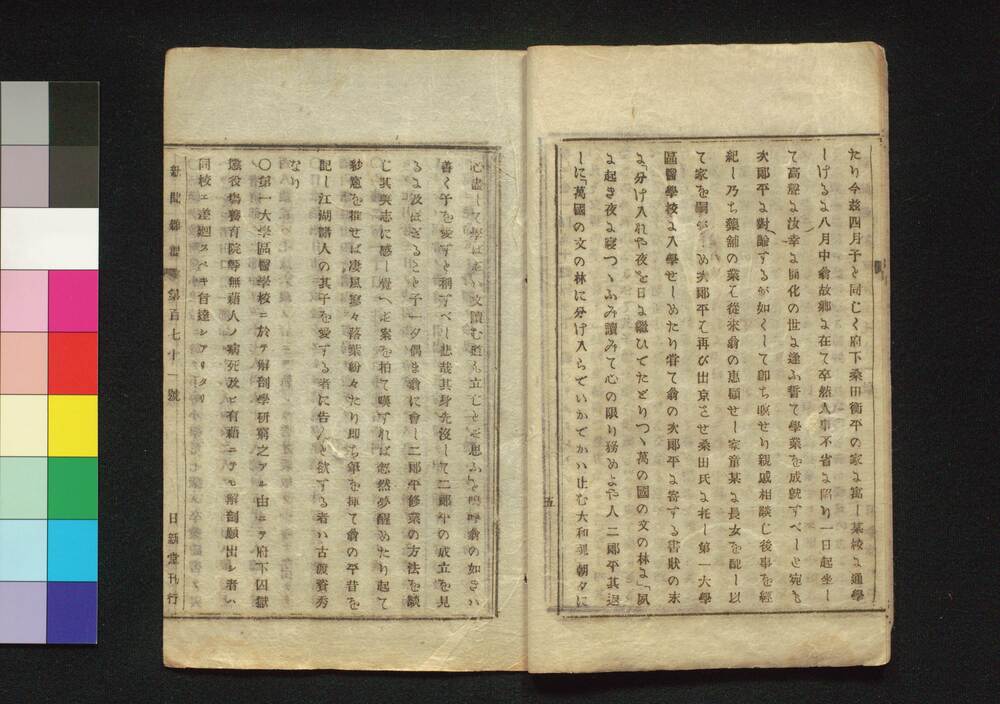 たり今茲四月予と同じく府下桑田衡平の家に寓し某校に通學
しけるに八月中翁故郷に在て卒然人事不省に陷り一日起坐し
て高聲に汝幸に開化の世に逢ふ誓て學業を成就すべしと宛も
次郎平に對諭するが如くして卽ち瞑せり親戚相談じ後事を經
紀し乃ち藥舖の業を從來翁の恵顧せし家童某に長女を配し以
て家を嗣がしめ次郎平を再び出京させ桑田氏に托し第一大學
區醫學校に入學せしめたり甞て翁の次郎平に寄する書狀の末
に分け入れや夜を日に繼ひでたどりつゝ萬の國の文の林に」夙
に起き夜に寝つゝふみ讀みて心の限り務めよや人二郎平其返
しに萬國の文の林に分け入らでいかでかハ止む大和 朝夕に
心盡して學ばずハ文讀む 立じとぞ思ふ」嗚呼翁の如きハ
善く子を愛すと稱すべし悲哉其身先沒して二郎平の成立を見
るに及ばざるを予一夕偶ま翁に會し二郎平修業の方法を談
じ其 志に感し覺へず案を拍て嘆ずれば忽然夢醒めたり起て
紗窓を推せば凄風寥々落葉紛々たり卽ち筆を揮て翁の平昔を
記し江湖諸人の其子を愛する者に告んと欲する者ハ古渡資秀
なり
〇第一大學區醫學校ニ於テ解剖學研窮之アル由ニテ府下囚獄
懲役塲養育院等無籍人ノ病死及ヒ有籍ニテモ解剖願出シ者ハ
同校エ送廻スベキ旨達シアリタリ
新聞雜誌 第百七十一號
日新堂刊行
五